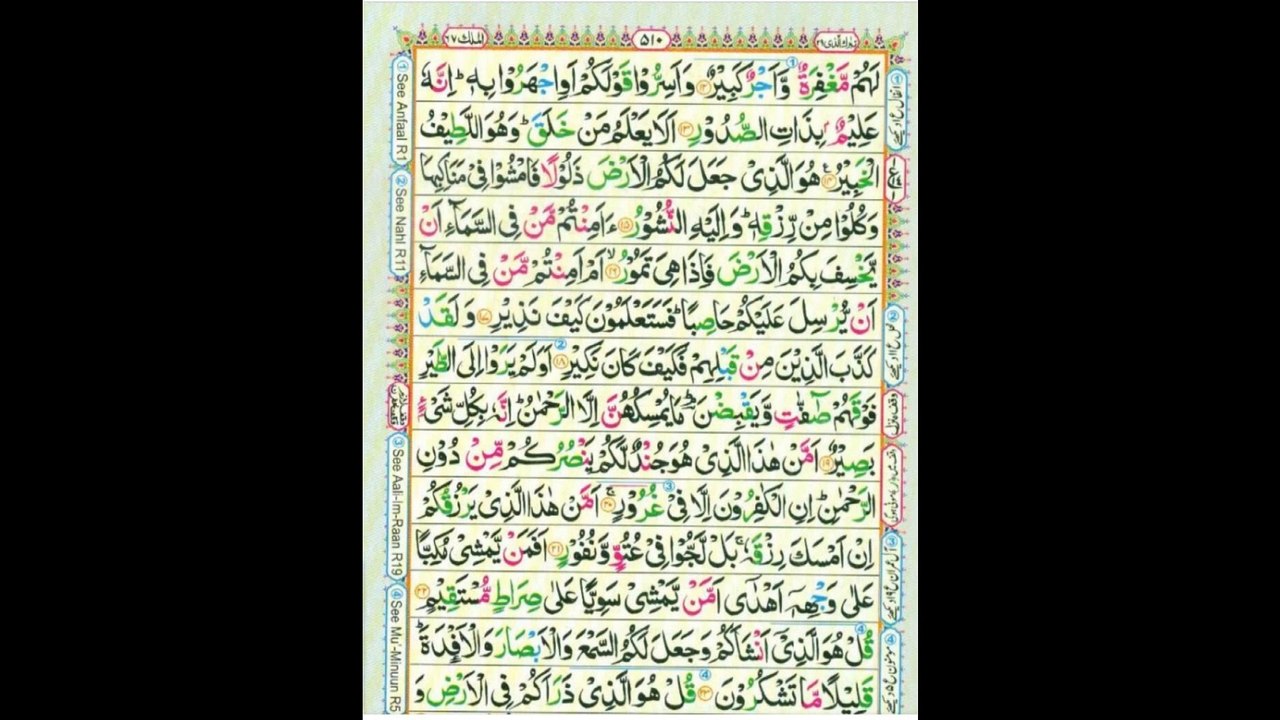 الملك ٦٧ ٥١٠ تبارك الذی ٢٩
لَهُمْ مَّغْفِرَةٌ وَّاَجْرٌ كَبِيْرٌ ۝١٢ وَاَسِرُّوْا قَوْلَكُمْ اَوِ اجْهَرُوْا بِهٖ ؕ اِنَّهٗ
عَلِيْمٌۢ بِذَاتِ الصُّدُوْرِ ۝١٣ اَلَا يَعْلَمُ مَنْ خَلَقَ ؕ وَهُوَ اللَّطِيْفُ
الْخَبِيْرُ ۝١٤ هُوَ الَّذِیْ جَعَلَ لَكُمُ الْاَرْضَ ذَلُوْلًا فَامْشُوْا فِیْ مَنَاكِبِهَا
وَكُلُوْا مِنْ رِّزْقِهٖ ؕ وَاِلَيْهِ النُّشُوْرُ ۝١٥ ءَاَمِنْتُمْ مَّنْ فِی السَّمَآءِ اَنْ
يَّخْسِفَ بِكُمُ الْاَرْضَ فَاِذَا هِیَ تَمُوْرُ ۝١٦ ۙ اَمْ اَمِنْتُمْ مَّنْ فِی السَّمَآءِ
اَنْ يُّرْسِلَ عَلَيْكُمْ حَاصِبًا ؕ فَسَتَعْلَمُوْنَ كَيْفَ نَذِيْرِ ۝١٧ وَلَقَدْ
كَذَّبَ الَّذِيْنَ مِنْ قَبْلِهِمْ فَكَيْفَ كَانَ نَكِيْرِ ۝١٨ اَوَلَمْ يَرَوْا اِلَی الطَّيْرِ
فَوْقَهُمْ صٰٓفّٰتٍ وَّيَقْبِضْنَ ؕ مَا يُمْسِكُهُنَّ اِلَّا الرَّحْمٰنُ ؕ اِنَّهٗ بِكُلِّ شَیْءٍۢ
بَصِيْرٌ ۝١٩ اَمَّنْ هٰذَا الَّذِیْ هُوَ جُنْدٌ لَّكُمْ يَنْصُرُكُمْ مِّنْ دُوْنِ
الرَّحْمٰنِ ؕ اِنِ الْكٰفِرُوْنَ اِلَّا فِیْ غُرُوْرٍ ۝٢٠ ۚ اَمَّنْ هٰذَا الَّذِیْ يَرْزُقُكُمْ
اِنْ اَمْسَكَ رِزْقَهٗ ۚ بَلْ لَّجُّوْا فِیْ عُتُوٍّ وَّنُفُوْرٍ ۝٢١ اَفَمَنْ يَّمْشِیْ مُكِبًّا
عَلٰی وَجْهِهٖۤ اَهْدٰۤی اَمَّنْ يَّمْشِیْ سَوِيًّا عَلٰی صِرَاطٍ مُّسْتَقِيْمٍ ۝٢٢
قُلْ هُوَ الَّذِیْۤ اَنْشَاَكُمْ وَجَعَلَ لَكُمُ السَّمْعَ وَالْاَبْصَارَ وَالْاَفْـِٕدَةَ ؕ
قَلِيْلًا مَّا تَشْكُرُوْنَ ۝٢٣ قُلْ هُوَ الَّذِیْ ذَرَاَكُمْ فِی الْاَرْضِ وَ
① See Anfaal R1
② See Nahl R11
③ See Aali-Im-Raan R19
④ See Mu'-Minuun R5